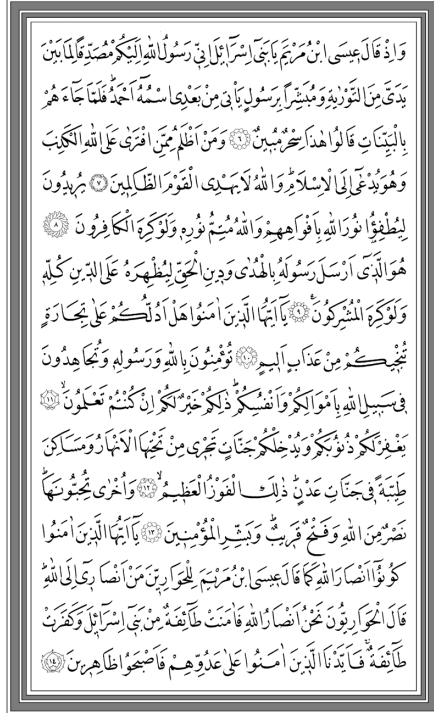 وَاِذْ قَالَ عٖيسَى ابْنُ مَرْيَمَ يَا بَنٖٓي اِسْرَٓائٖلَ اِنّٖي رَسُولُ اللّٰهِ اِلَيْكُمْ مُصَدِّقًا لِمَا بَيْنَ
يَدَيَّ مِنَ التَّوْرٰيةِ وَمُبَشِّرًا بِرَسُولٍ يَأْتٖي مِنْ بَعْدِي اسْمُهُٓ اَحْمَدُؕ فَلَمَّا جَٓاءَهُمْ
بِالْبَيِّنَاتِ قَالُوا هٰذَا سِحْرٌ مُبٖينٌ ﴿٦﴾ وَمَنْ اَظْلَمُ مِمَّنِ افْتَرٰى عَلَى اللّٰهِ الْكَذِبَ
وَهُوَ يُدْعٰٓى اِلَى الْاِسْلَامِؕ وَاللّٰهُ لَا يَهْدِي الْقَوْمَ الظَّالِمٖينَ ﴿٧﴾ يُرٖيدُونَ
لِيُطْفِؤُ۫ا نُورَ اللّٰهِ بِاَفْوَاهِهِمْ وَاللّٰهُ مُتِمُّ نُورِهٖ وَلَوْ كَرِهَ الْكَافِرُونَ ﴿٨﴾
هُوَ الَّذٖٓي اَرْسَلَ رَسُولَهُ بِالْهُدٰى وَدٖينِ الْحَقِّ لِيُظْهِرَهُ عَلَى الدّٖينِ كُلِّهٖ
وَلَوْ كَرِهَ الْمُشْرِكُونَ۟ ﴿٩﴾ يَٓا اَيُّهَا الَّذٖينَ اٰمَنُوا هَلْ اَدُلُّكُمْ عَلٰى تِجَارَةٍ
تُنْجٖيكُمْ مِنْ عَذَابٍ اَلٖيمٍ ﴿١٠﴾ تُؤْمِنُونَ بِاللّٰهِ وَرَسُولِهٖ وَتُجَاهِدُونَ
فٖي سَبٖيلِ اللّٰهِ بِاَمْوَالِكُمْ وَاَنْفُسِكُمْؕ ذٰلِكُمْ خَيْرٌ لَكُمْ اِنْ كُنْتُمْ تَعْلَمُونَۙ ﴿١١﴾
يَغْفِرْ لَكُمْ ذُنُوبَكُمْ وَيُدْخِلْكُمْ جَنَّاتٍ تَجْرٖي مِنْ تَحْتِهَا الْاَنْهَارُ وَمَسَاكِنَ
طَيِّبَةً فٖي جَنَّاتِ عَدْنٍؕ ذٰلِكَ الْفَوْزُ الْعَظٖيمُۙ ﴿١٢﴾ وَاُخْرٰى تُحِبُّونَهَاؕ
نَصْرٌ مِنَ اللّٰهِ وَفَتْحٌ قَرٖيبٌؕ وَبَشِّرِ الْمُؤْمِنٖينَ ﴿١٣﴾ يَٓا اَيُّهَا الَّذٖينَ اٰمَنُوا
كُونُٓوا اَنْصَارَ اللّٰهِ كَمَا قَالَ عٖيسَى ابْنُ مَرْيَمَ لِلْحَوَارِيّٖنَ مَنْ اَنْصَارٖٓي اِلَى اللّٰهِؕ
قَالَ الْحَوَارِيُّونَ نَحْنُ اَنْصَارُ اللّٰهِ فَاٰمَنَتْ طَٓائِفَةٌ مِنْ بَنٖٓي اِسْرَٓائٖلَ وَكَفَرَتْ
طَٓائِفَةٌۚ فَاَيَّدْنَا الَّذٖينَ اٰمَنُوا عَلٰى عَدُوِّهِمْ فَاَصْبَحُوا ظَاهِرٖينَ ﴿١٤﴾